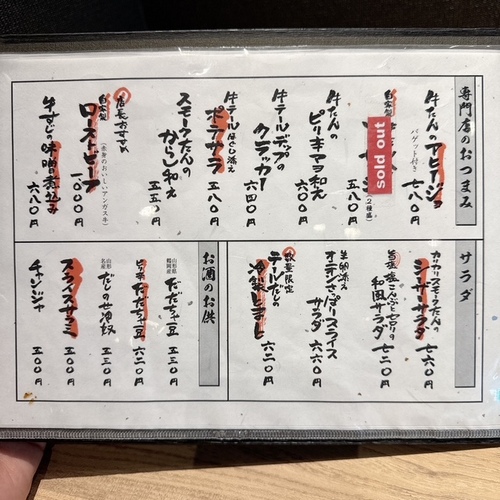 専門店のおつまみ
牛たんのアヒージョ
バゲット付き
七八〇円
自家製
sold out
(2種盛)
五八〇円
牛たんの
ピリキマヨ和え
六〇〇円
牛テールデップの
クラッカー
六四〇円
牛テールほぐし添え
ポテサラ
五八〇円
スモークたんの
からし和え
五五〇円
店長おすすめ
自家製
ローストビーフ
(赤身のおいしいアンガス牛)
一〇〇〇円
牛すじの味噌煮込み
六八〇円
サラダ
カリカリスモークたんの
シーザーサラダ
七六〇円
旨塩
塩こんぶとセロリの
和風サラダ
七二〇円
オニテンさっぱりスライス
サラダ
六六〇円
数量限定
テールだしの
冷製トマト
六二〇円
お酒のお供
山形県
鶴岡産
だだちゃ豆
五三〇円
ピリ辛だだちゃ豆
六二〇円
山形
名産
だしの甘油奴
五三〇円
スライスサラミ
五〇〇円
チャンジャ
五〇〇円